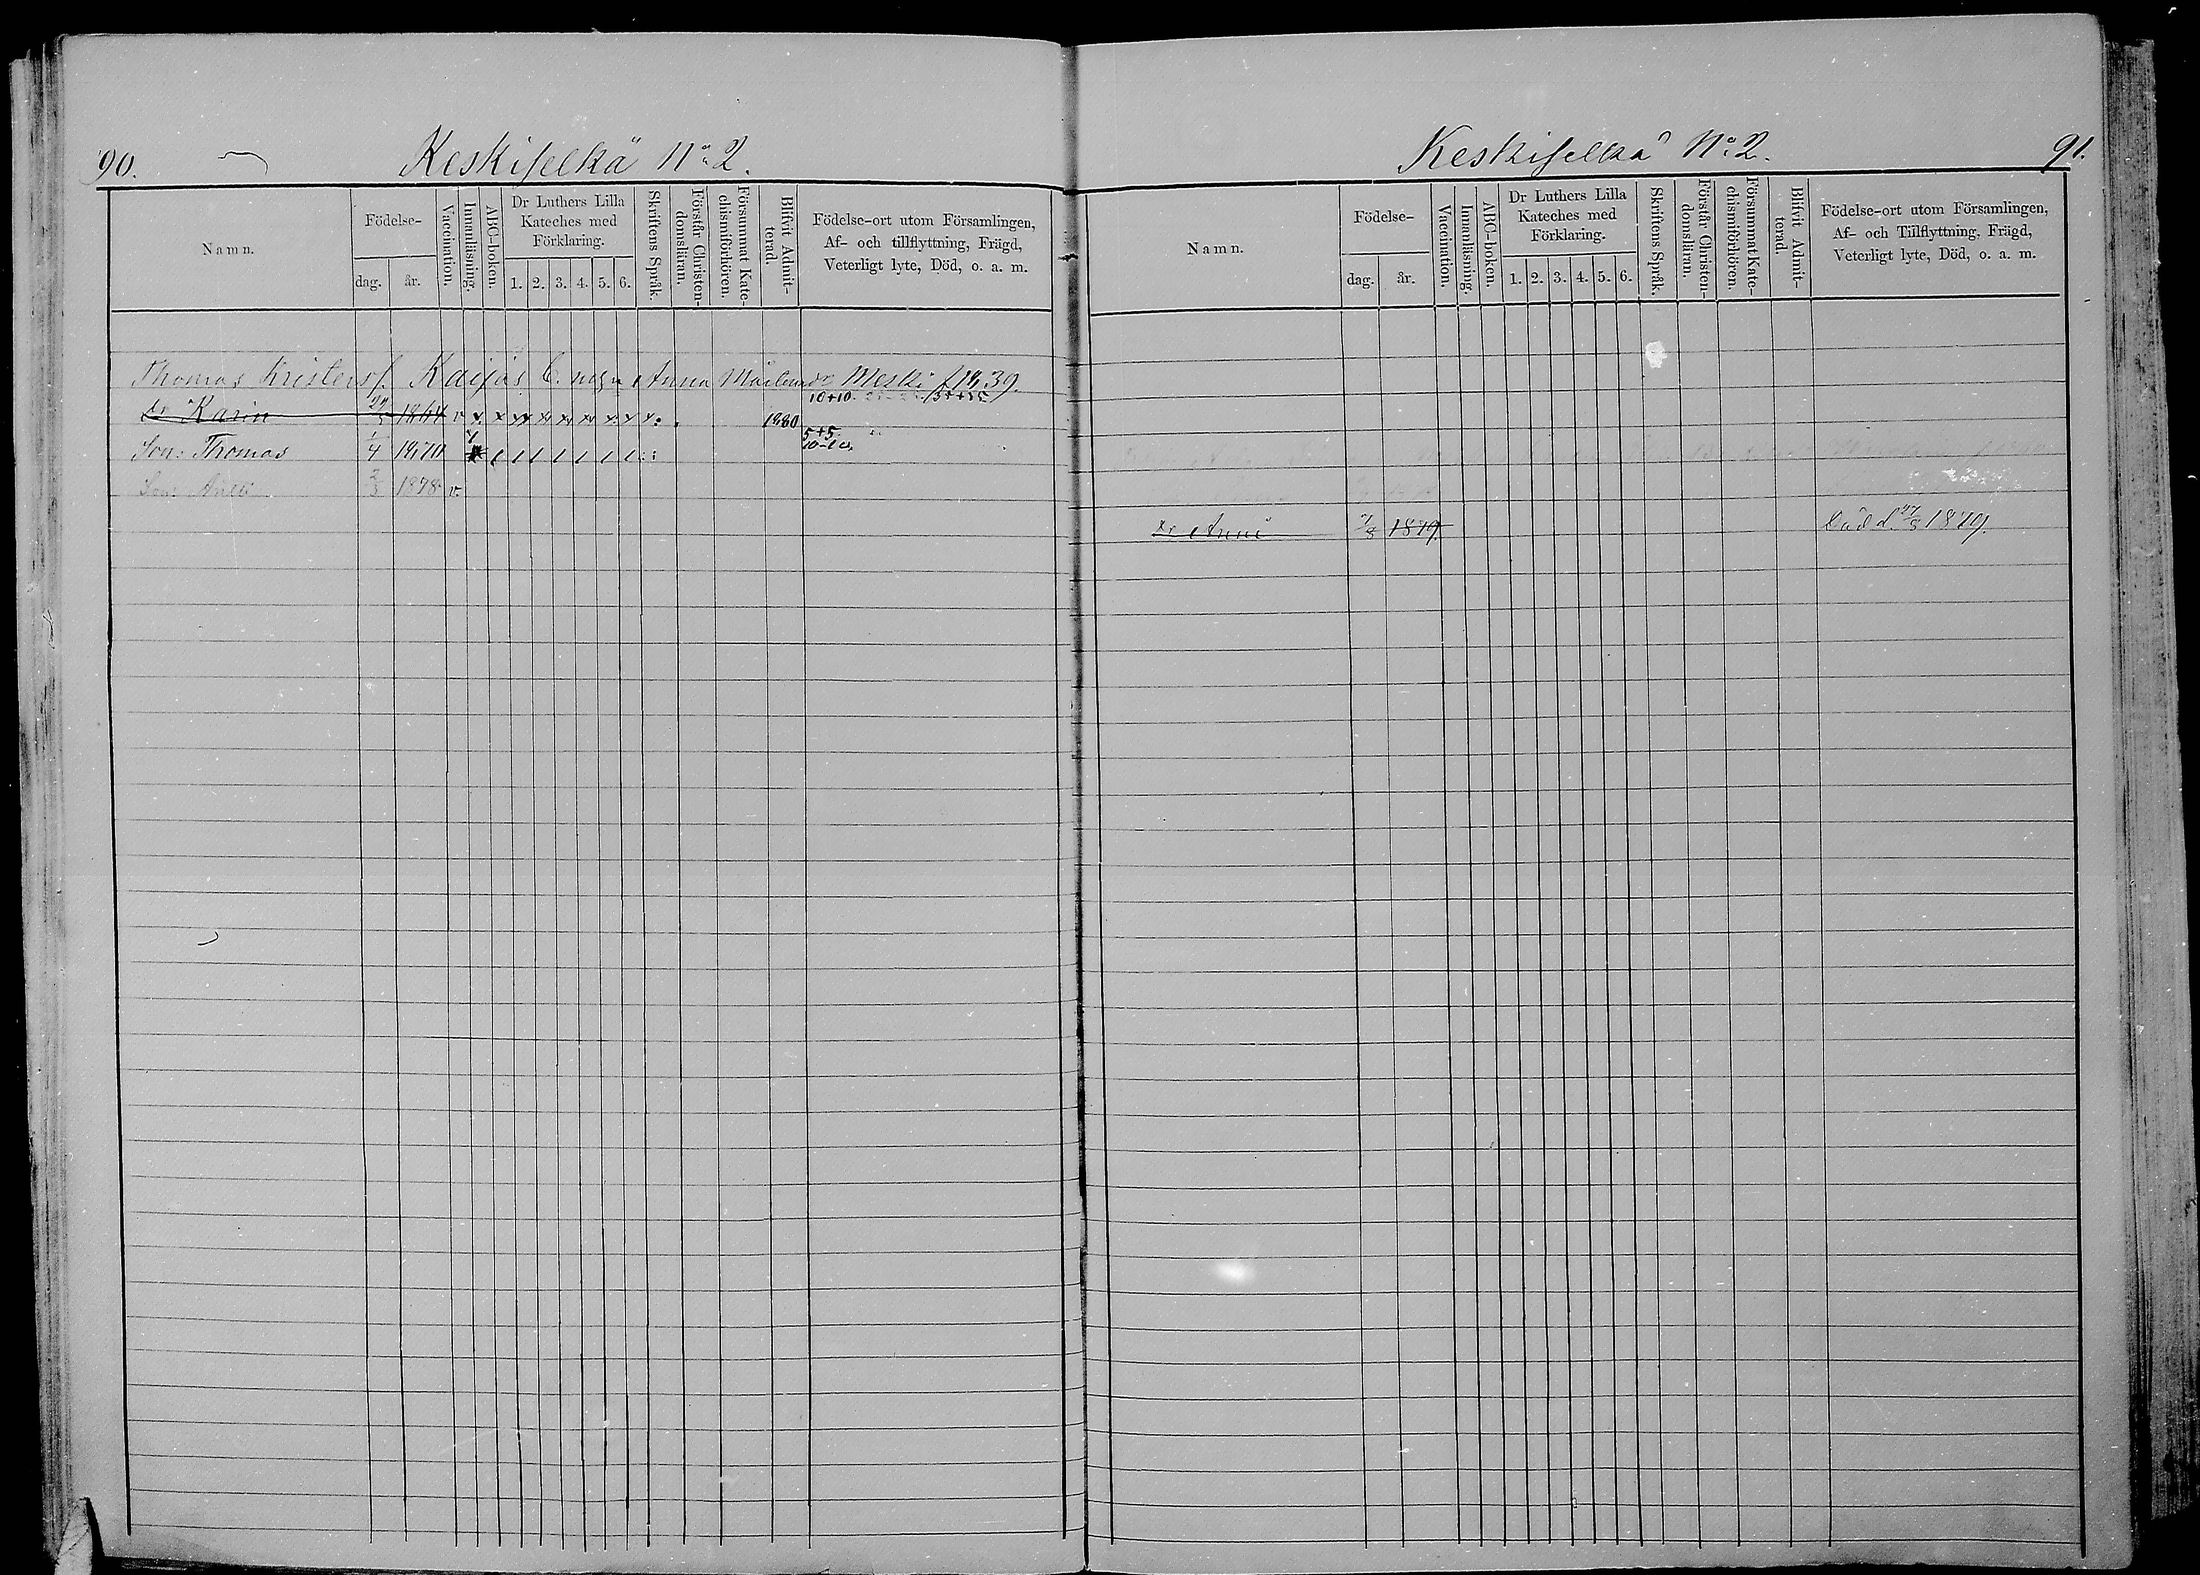 90. Keskiselkä No: 2.
Namn.
Födelse-
dag. år.
Vaccination.
Innanläsning.
ABC-boken.
Dr Luthers Lilla
Kateches med
Förklaring.
1. 2. 3. 4. 5. 6.
Skriftens Språk.
Förstår Christen-
domsläran.
Försummat Kate-
chismiförhören.
Blifvit Admit-
terad.
Födelse-ort utom Församlingen,
Af- och tillflyttning, Frägd,
Veterligt lyte, Död, o. a. m.
Thomas Kristersf. Kaijas Anna Meski f. 1839.
10+10.
Dr Karin 1864 v. x x x x x x x x x 1880
5+5
Son: Thomas 1/4 1870
Son: Antti 2/3 1878 v.
Keskiselkä No: 2. 91.
Namn.
Födelse-
dag. år.
Vaccination.
Innanläsning.
ABC-boken.
Dr Luthers Lilla
Kateches med
Förklaring.
1. 2. 3. 4. 5. 6.
Skriftens Språk.
Förstår Christen-
domsläran.
Försummat Kate-
chismiförhören.
Blifvit Admit-
terad.
Födelse-ort utom Församlingen,
Af- och Tillflyttning, Frägd,
Veterligt lyte, Död, o. a. m.
Dr Anni 1879. Död d. 1879.